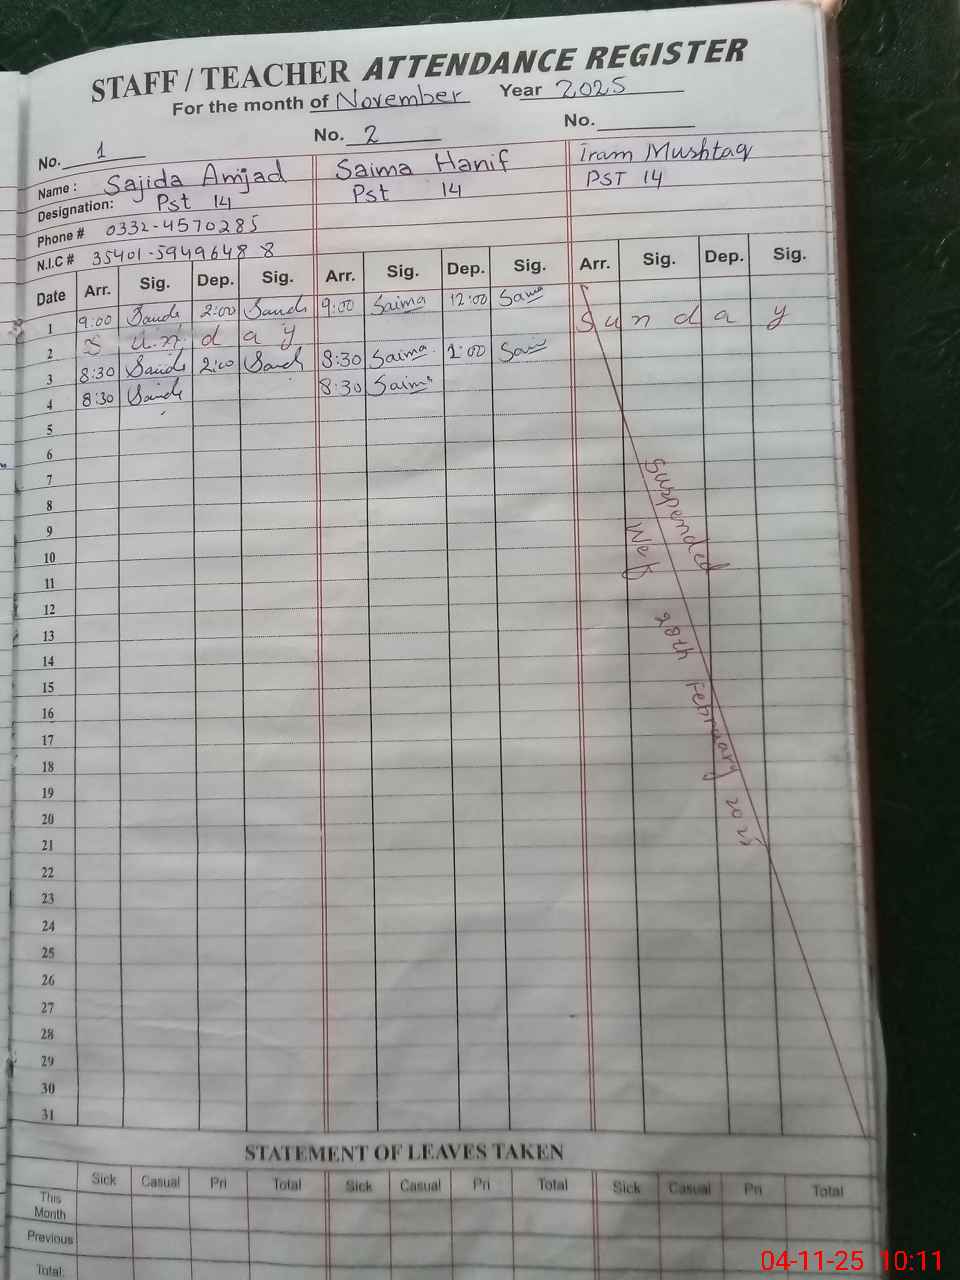 STAFF / TEACHER ATTENDANCE REGISTER
For the month of November Year 2025
No. 1 No. 2 No.
Name : Sajida Amjad Saima Hanif Iram Mushtaq
Designation: Pst 14 Pst 14 PST 14
Phone # 0332-4570285
N.I.C # 35401-5949648 8
Date Arr. Sig. Dep. Sig. Arr. Sig. Dep. Sig. Arr. Sig. Dep. Sig.
1 9:00 2:00 9:00 Saima 12:00 Saima
2 Sunday Sunday
3 8:30 2:00 8:30 Saima 2:00
4 8:30 8:30 Saima
5
6
7
8
9
10
11
12
13
14
15
16
17
18
19
20
21
22
23
24
25
26
27
28
29
30
31
Suspended
Wef
28th February 2025
STATEMENT OF LEAVES TAKEN
Sick Casual Pri Total Sick Casual Pri Total Sick Casual Pri Total
This Month
Previous
Total:
04-11-25 10:11